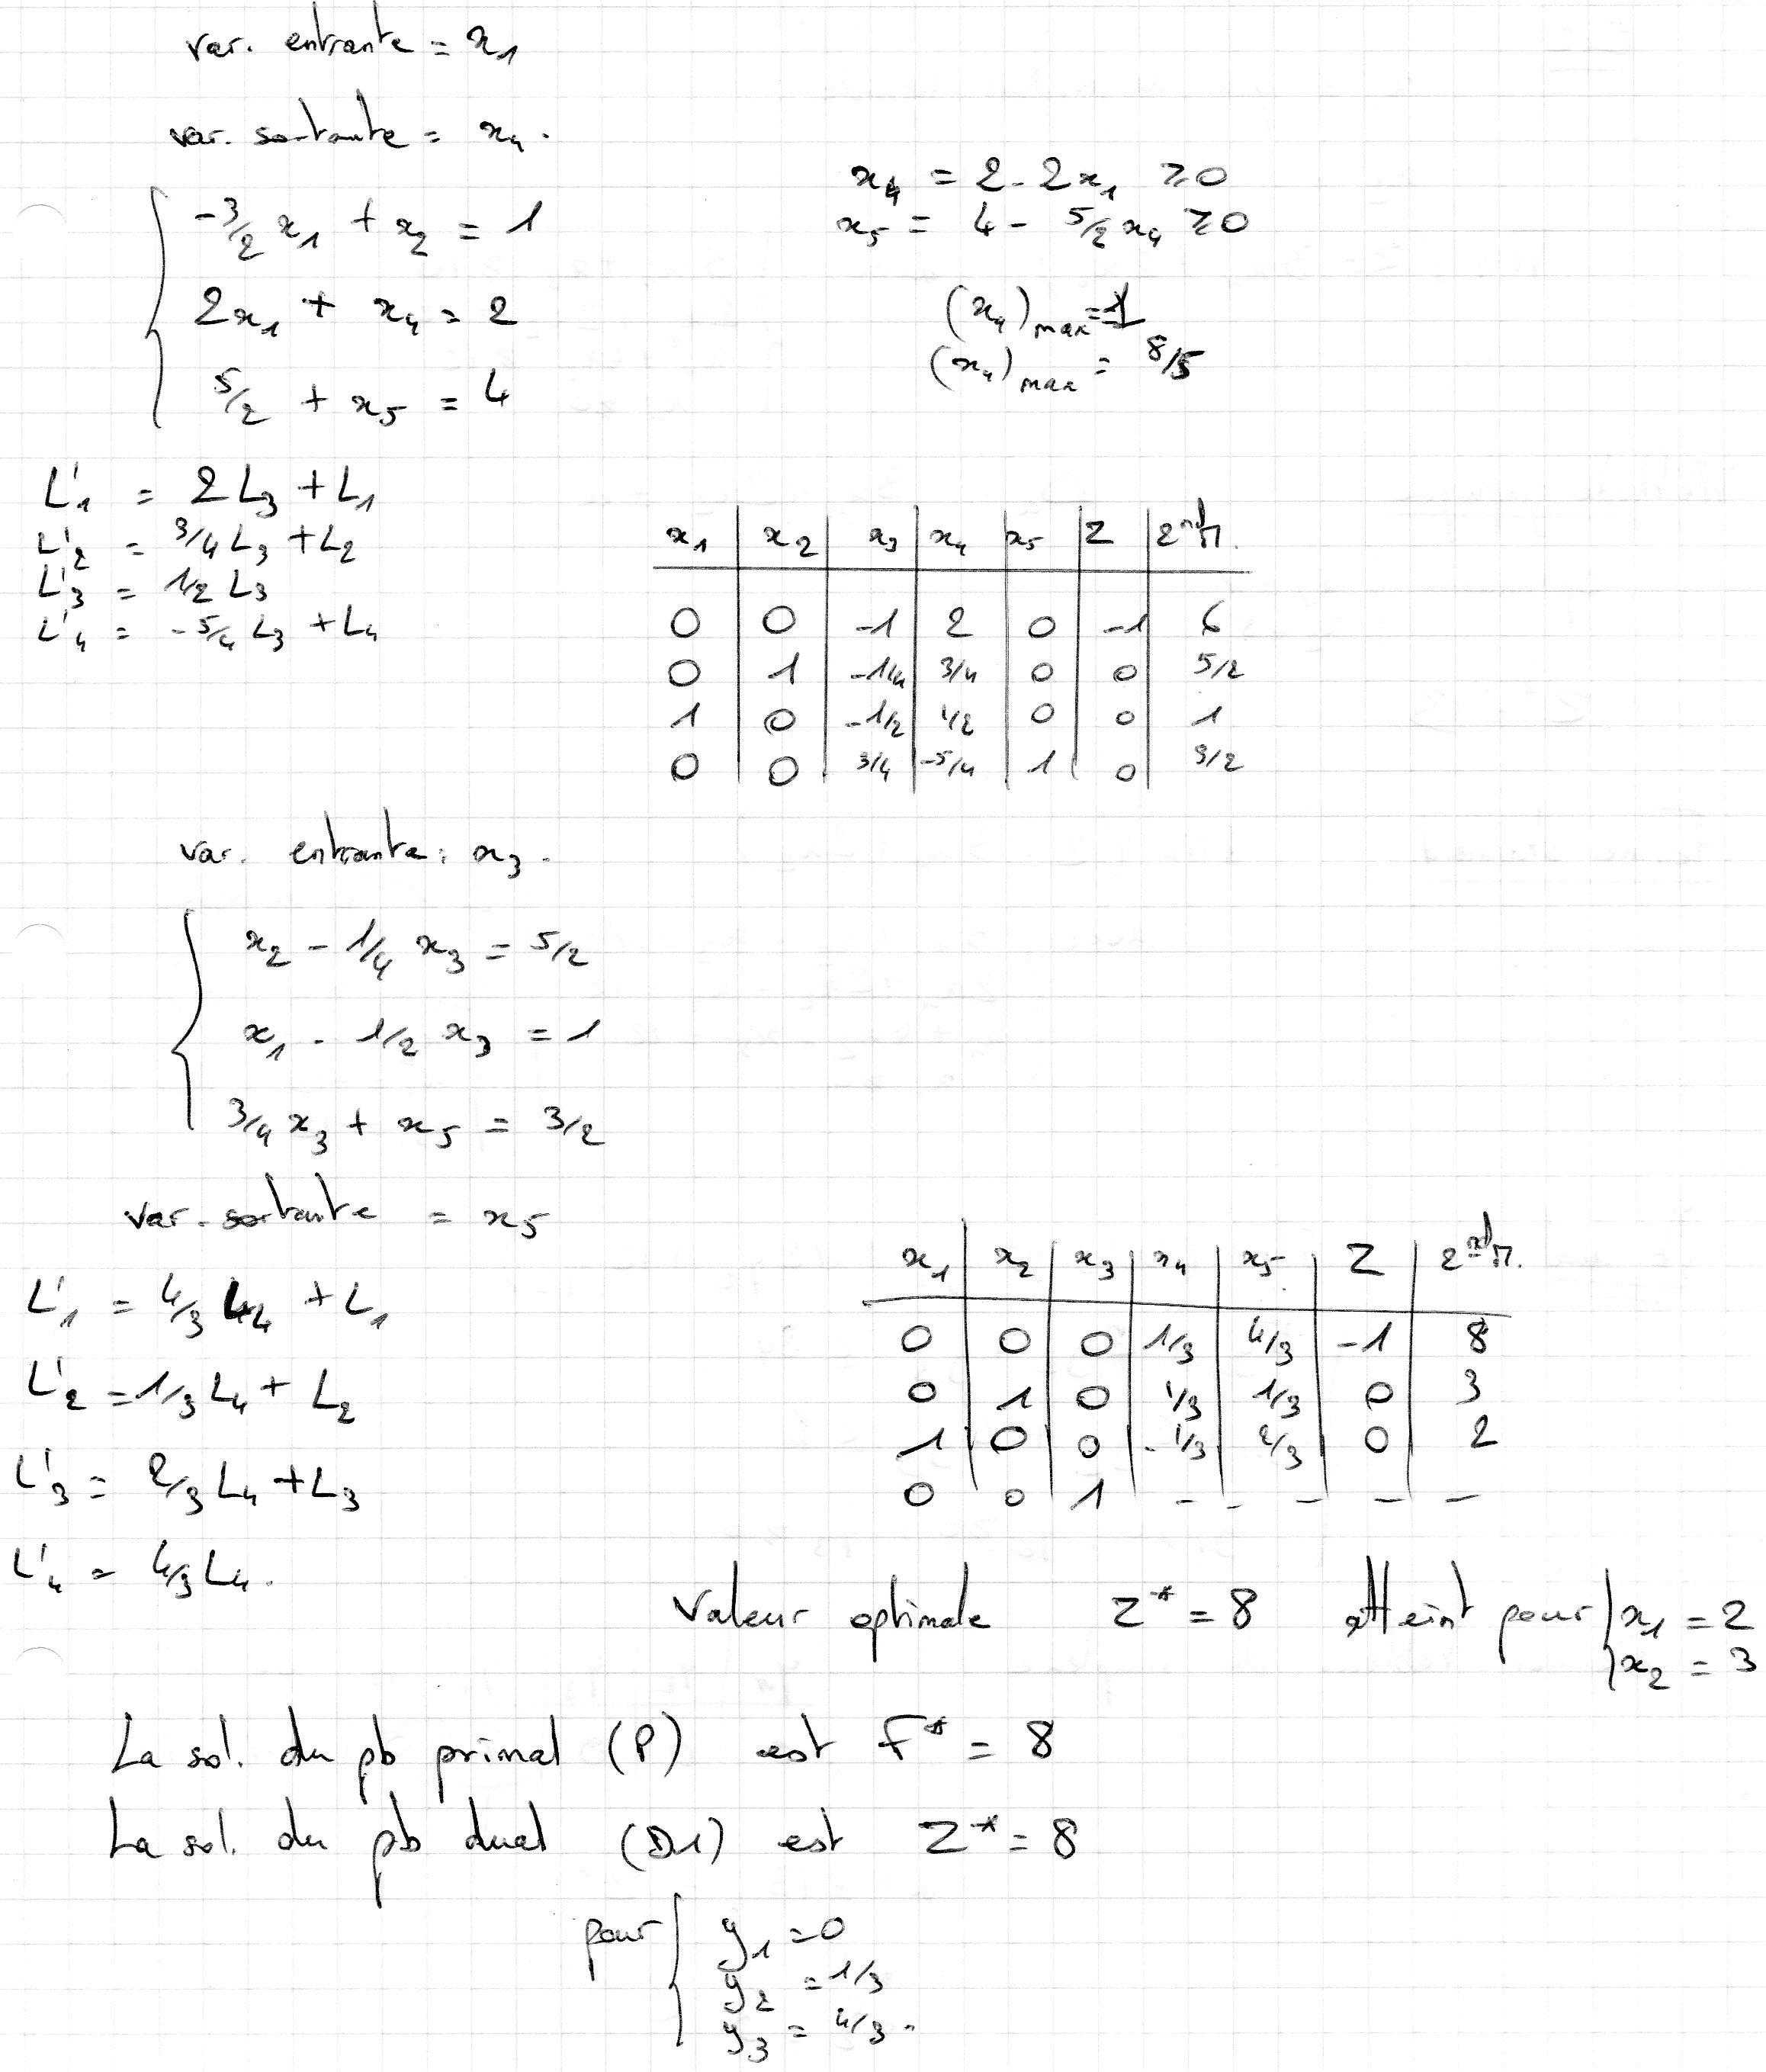 var. entrante = x1
var. sortante = x4.
x4 = 2 - 2x1 ≥0
x5 = 4 - 5/2 x4 ≥0
-3/2 x1 + x2 = 1
2x1 + x4 = 2
5/2 + x5 = 4
(x4)max = 1
(x4)max = 8/5
L'1 = 2L3 + L1
L'2 = 3/4 L3 + L2
L'3 = 1/2 L3
L'4 = -5/4 L3 + L4
x1 | x2 | x3 | x4 | x5 | Z | 2nd M.
0 | 0 | -1 | 2 | 0 | -1 | 6
0 | 1 | -1/4 | 3/4 | 0 | 0 | 5/2
1 | 0 | -1/2 | 1/2 | 0 | 0 | 1
0 | 0 | 3/4 | -5/4 | 1 | 0 | 3/2
var. entrante : x3.
x2 - 1/4 x3 = 5/2
x1 - 1/2 x3 = 1
3/4 x3 + x5 = 3/2
var. sortante = x5
L'1 = 4/3 L4 + L1
L'2 = 1/3 L4 + L2
L'3 = 2/3 L4 + L3
L'4 = 4/3 L4.
x1 | x2 | x3 | x4 | x5 | Z | 2nd M.
0 | 0 | 0 | 1/3 | 4/3 | -1 | 8
0 | 1 | 0 | 1/3 | 1/3 | 0 | 3
1 | 0 | 0 | -1/3 | 2/3 | 0 | 2
0 | 0 | 1 | - - - - -
Valeur optimale Z* = 8 atteint pour { x1 = 2
x2 = 3
La sol. du pb primal (P) est F* = 8
La sol. du pb dual (D1) est Z* = 8
pour { y1 = 0
y2 = 1/3
y3 = 4/3.